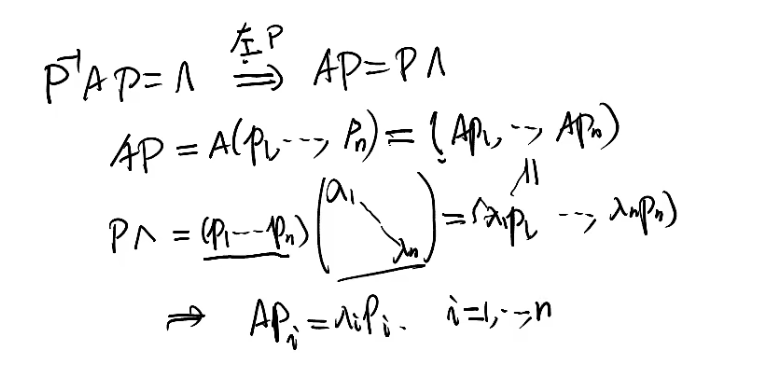 P⁻¹AP=Λ 左P ⟹ AP=PΛ
AP=A(p₁, ⋯, pₙ)=(Ap₁, ⋯, Apₙ)
||
PΛ=(p₁⋯pₙ)(λ₁ ⋱ λₙ)=(λ₁p₁ ⋯, λₙpₙ)
⇒ Apᵢ=λᵢpᵢ. i=1,⋯,n